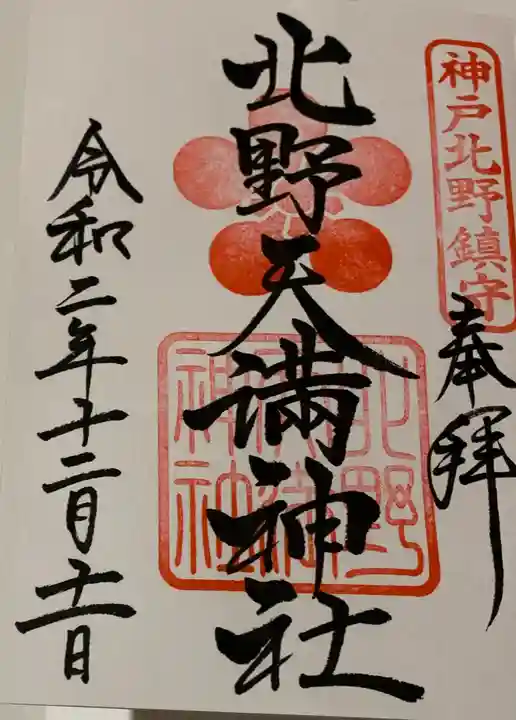 神戸北野鎮守
奉拝
北野天満神社
北野
天満
神社
令和二年十二月十一日